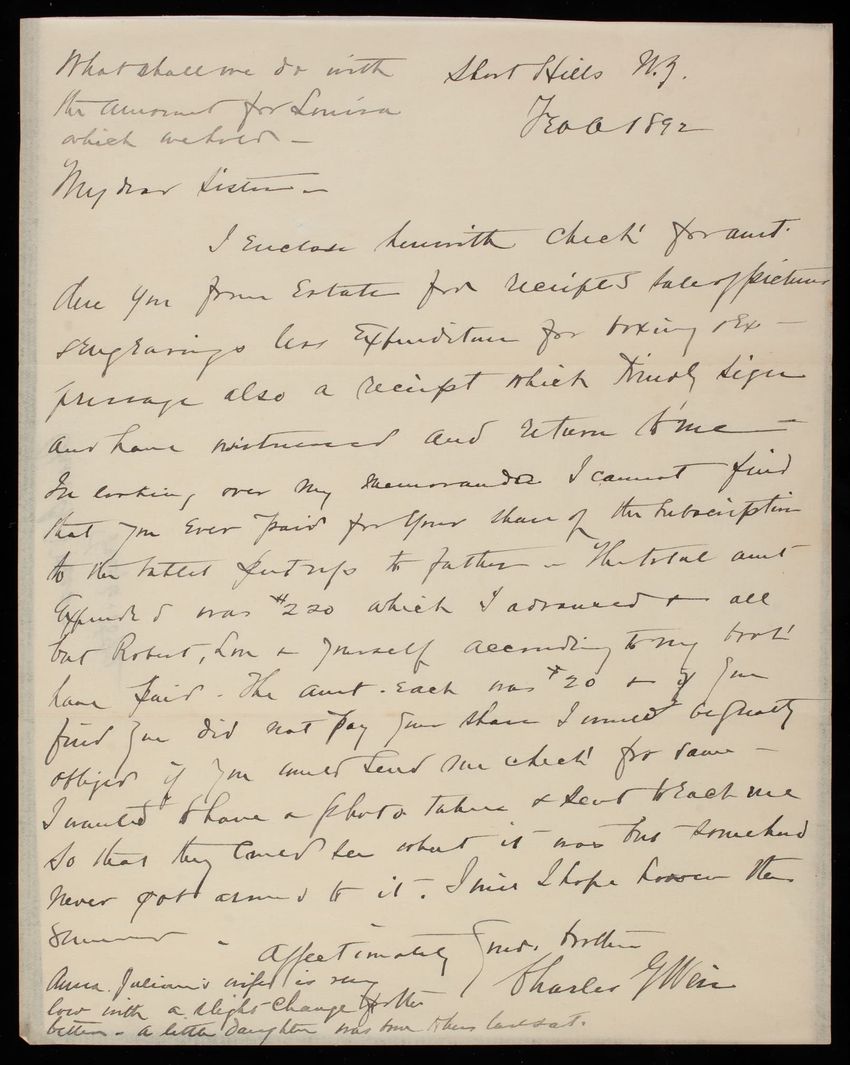 What shall we do with
the amount for Louisa
which we hold –
Short Hills N.J.
Feb 6 1892
My dear Sister –
I Enclose herewith Check for amt.
due you from Estate for receipts sale of pictures
& Engravings less Expenditure for boxing & Ex-
pressage also a receipt which kindly sign
and have witnessed and return to me –
In looking over my memoranda I cannot find
that you Ever paid for your share of the Subscription
to the tablet put up to father – The total amt
Expended was $220 which I advanced & all
but Robert, Lou & yourself according to my book
have paid. The amt. Each was $20 & if you
find you did not pay your share I would be greatly
obliged if you would send me check for same –
I wanted to have a photo taken & sent to Each one
so that they could see what it was but somehow
never got around to it. I will I hope however this
Summer –
Affectionately Your brother
Charles G Weir
Anna Julian's wife is very
low with a slight change for the
better – a little daughter was born there last Sat.